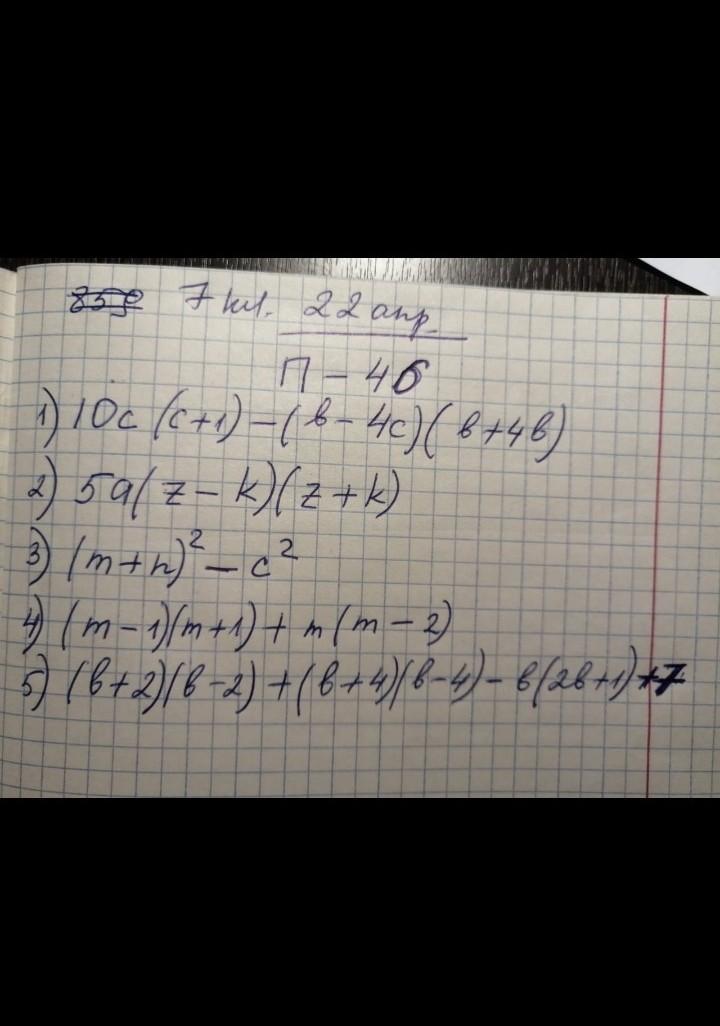 859 7 кл. 22 апр.
П - 46
1) 10c (c+1) - (в - 4c)( в+4в)
2) 5a( z - k)(z + k)
3) (m+n)² - c²
4) (m-1)(m+1) + m(m-2)
5) (в+2)(в-2) + (в+4)(в-4) - в(2в+1)+7